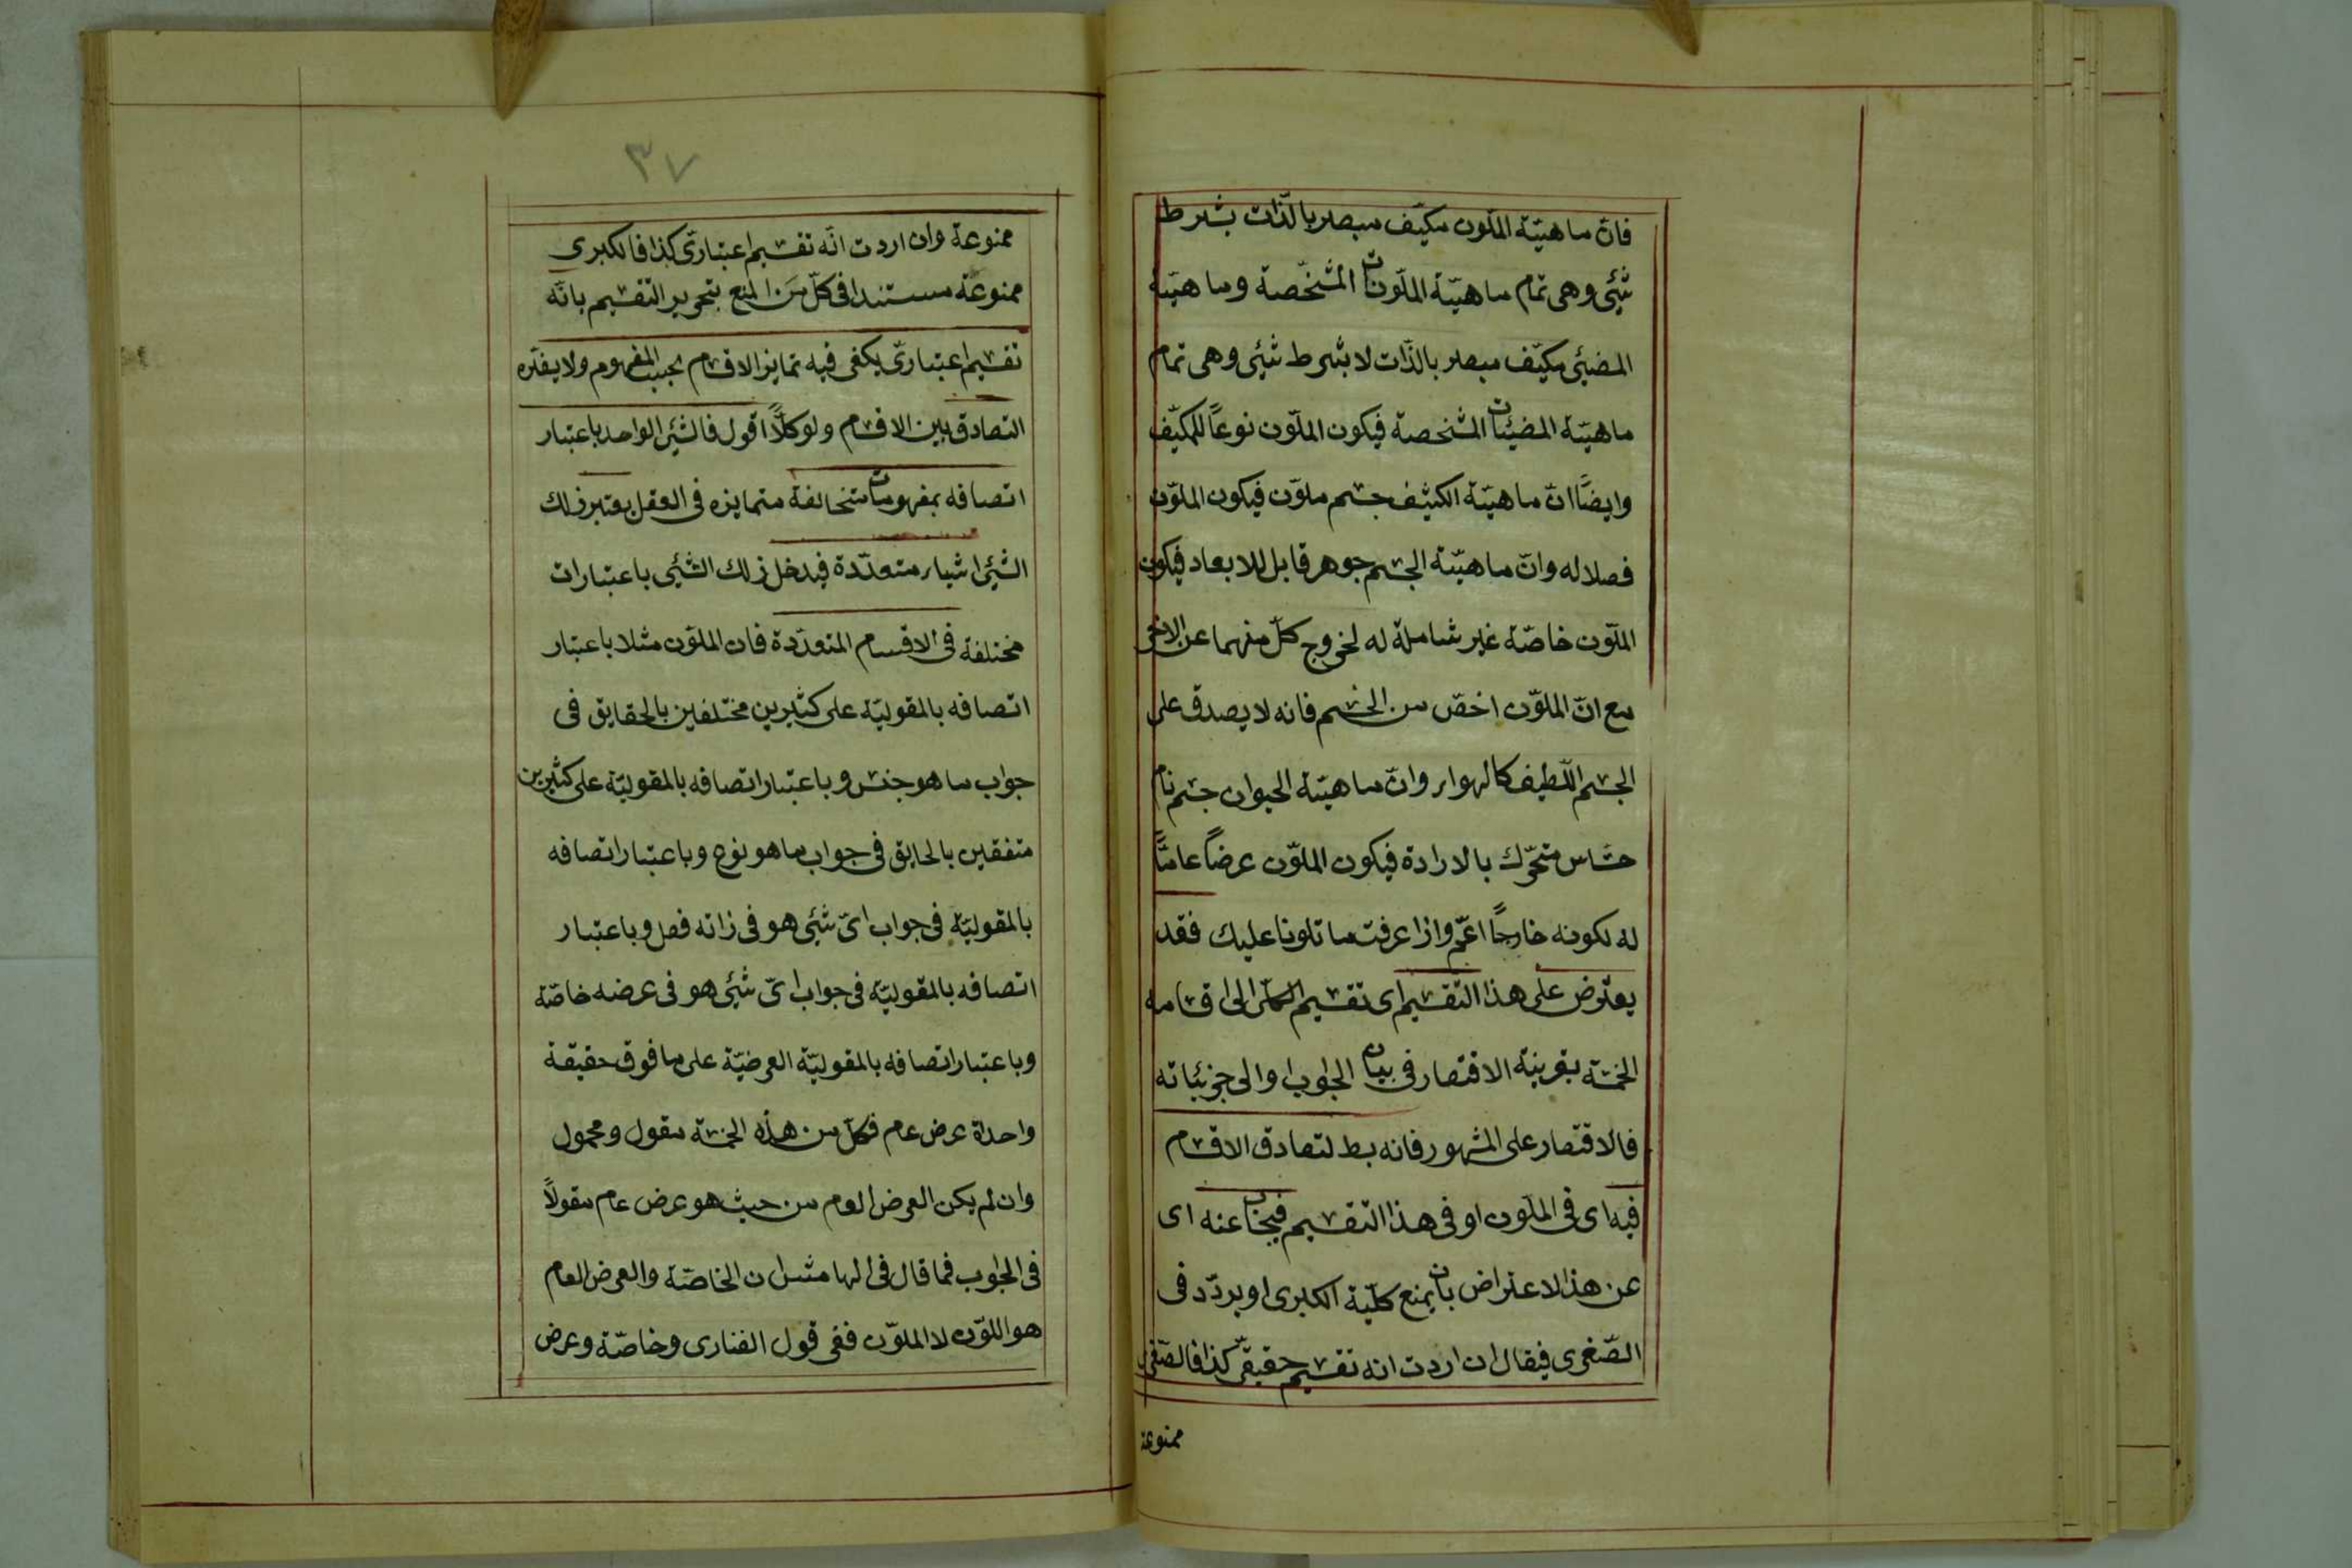 فانّ ماهيّة الملّون مكيّف مبصر بالذّات بشرط
شئي وهى تمام ماهيّة الملّونات المشخّصة وماهيّة
المضيئى مكيّف مبصر بالذّات لا بشرط شئي وهى تمام
ماهيّة المضيئات المشخصة فيكون الملّون نوعاً للمكيّف
وايضًا انّ ماهيّة الكثيف جسم ملوّن فيكون الملوّن
فصلا له وانّ ماهيّة الجسم جوهر قابل للابعاد فيكون
الملّون خاصّة غير شاملة له لخروج كلّ منهما عن الاخر
مع انّ الملوّن اخصّ من الجسم فانه لا يصدق على
الجسم اللّطيف كالهواء وانّ ماهيّة الحيوان جسم نام
حسّاس متحرّك بالارادة فيكون الملوّن عرضاً عامّاً
له لكونه خارجًا اعمّ واذا عرفت ما تلونا عليك فقد
يعترض على هذا التقسيم اى تقسيم الكلّى الى اقسامه
الخمسة بقرينة الاقتصار فى بيان الجواب والى جزئياته
فالاقتصار على المشهور فانه بط لتصادق الاقسام
فيه اى فى الملّون او فى هذا التقسيم فيجاب عنه اى
عن هذا الاعتراض بان يمنع كلّية الكبرى او يردّد فى
الصّغرى فيقال ان اردت انه تقسيم حقيقّى كذا فالصّغرى
ممنوعة
٣٧
ممنوعة وان اردت انّه تقسيم اعتبارىّ كذا فالكبرى
ممنوعة مستندا فى كلّ من المنع بتحرير التقسيم بانّه
تقسيم اعتبارىّ يكفى فيه تمايز الاقسام بحسب المفهوم ولا يضرّه
التصادق بين الاقسام ولو كلّاً اقول فالشئى الواحد باعتبار
اتصافه بمفهومات متخالفة متمايزه فى العقل يعتبر ذلك
الشئى اشياء متعدّدة فيدخل ذلك الشئي باعتبارات
مختلفة فى الاقسام المتعدّدة فان الملوّن مثلا باعتبار
اتصافه بالمقوليّة على كثيرين مختلفين بالحقايق فى
جواب ما هو جنس وباعتبار اتصافه بالمقوليّة على كثيرين
متفقين بالحايق فى جواب ما هو نوع وباعتبار اتصافه
بالمقوليّة فى جواب اىّ شئي هو فى ذاته فصل وباعتبار
اتصافه بالمقوليّة فى جواب اىّ شئي هو فى عرضه خاصّة
وباعتبار اتصافه بالمقوليّة العرضيّة على ما فوق حقيقة
واحدة عرض عام فكلّ من هذه الخمسة مقول ومحمول
وان لم يكن العرض العام من حيث هو عرض عام مقولاً
فى الجواب فما قال فى الهامش ان الخاصّة والعرض العام
هو اللوّن لا الملوّن ففى قول الفنارى وخاصّة وعرض